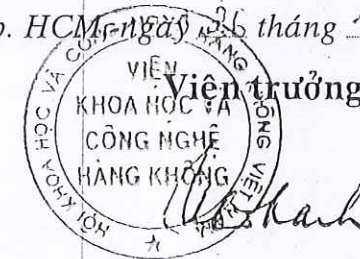 p. HCM, ngày 26 tháng
Viện trưởng
HỘI KHOA HỌC VÀ CÔNG NGHỆ HÀNG KHÔNG VIỆT NAM
VIỆN
KHOA HỌC VÀ
CÔNG NGHỆ
HÀNG KHÔNG